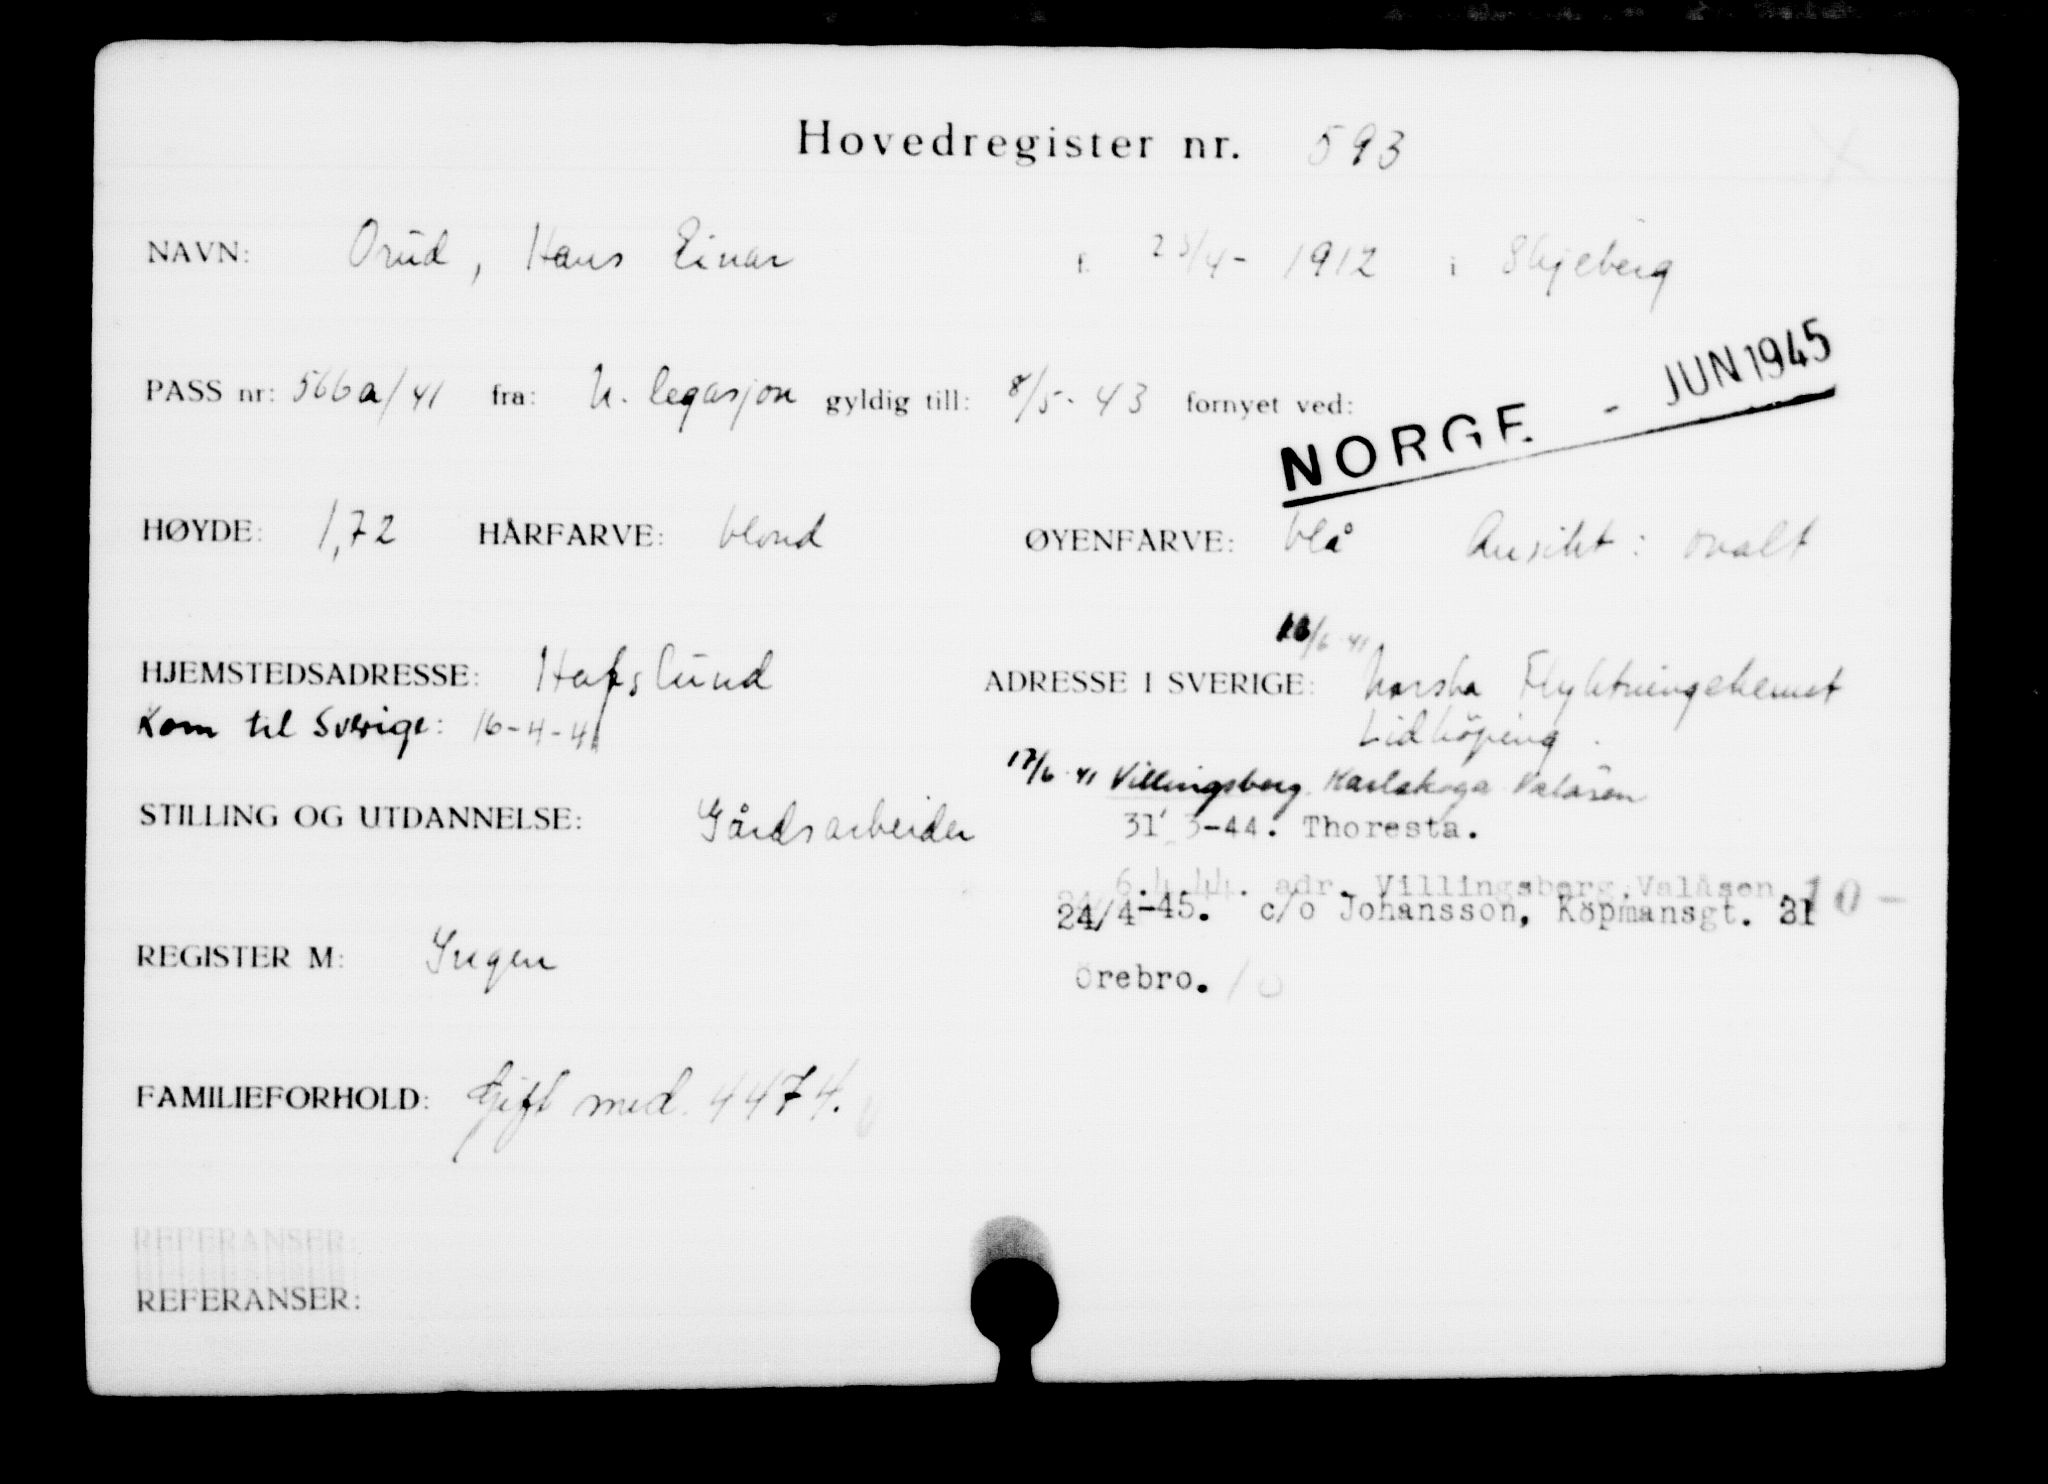 Hovedregister nr. 593
NAVN: Orud, Hans Einar f. 25/4 - 1912 i Skjeberg
PASS nr: 566a/41 fra: N. legasjon gyldig till: 8/5 - 43 fornyet ved:
NORGE - JUN 1945
HØYDE: 1,72 HÅRFARVE: blond ØYENFARVE: blå Ansikt: ovalt
HJEMSTEDSADRESSE: Hafslund ADRESSE I SVERIGE: /6-41 Norska Flyktningehemmet
Kom til Sverige: 16-4-41 Lidköping.
17/6-41 Villingsberg Karlskoga Valåsen
STILLING OG UTDANNELSE: Gårdsarbeider 31/3-44. Thoresta.
6.4.44. adr. Villingsberg, Valåsen. 10-
24/4-45. c/o Johansson, Köpmansgt. 31
REGISTER M: Ingen Örebro. 10
FAMILIEFORHOLD: Gift med 4474.
REFERANSER:
REFERANSER: